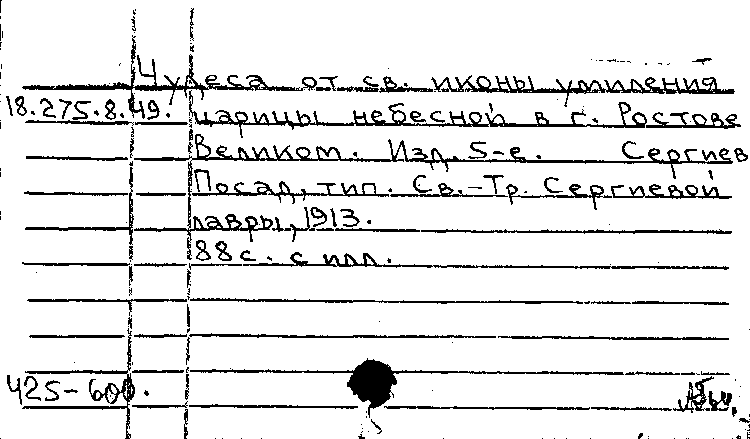 Чудеса от св. иконы умиления
18.275.8.49. царицы небесной в г. Ростове
Великом. Изд. 5-е. Сергиев
Посад, тип. Св.-Тр. Сергиевой
лавры, 1913.
88 с. с илл.
425-600.